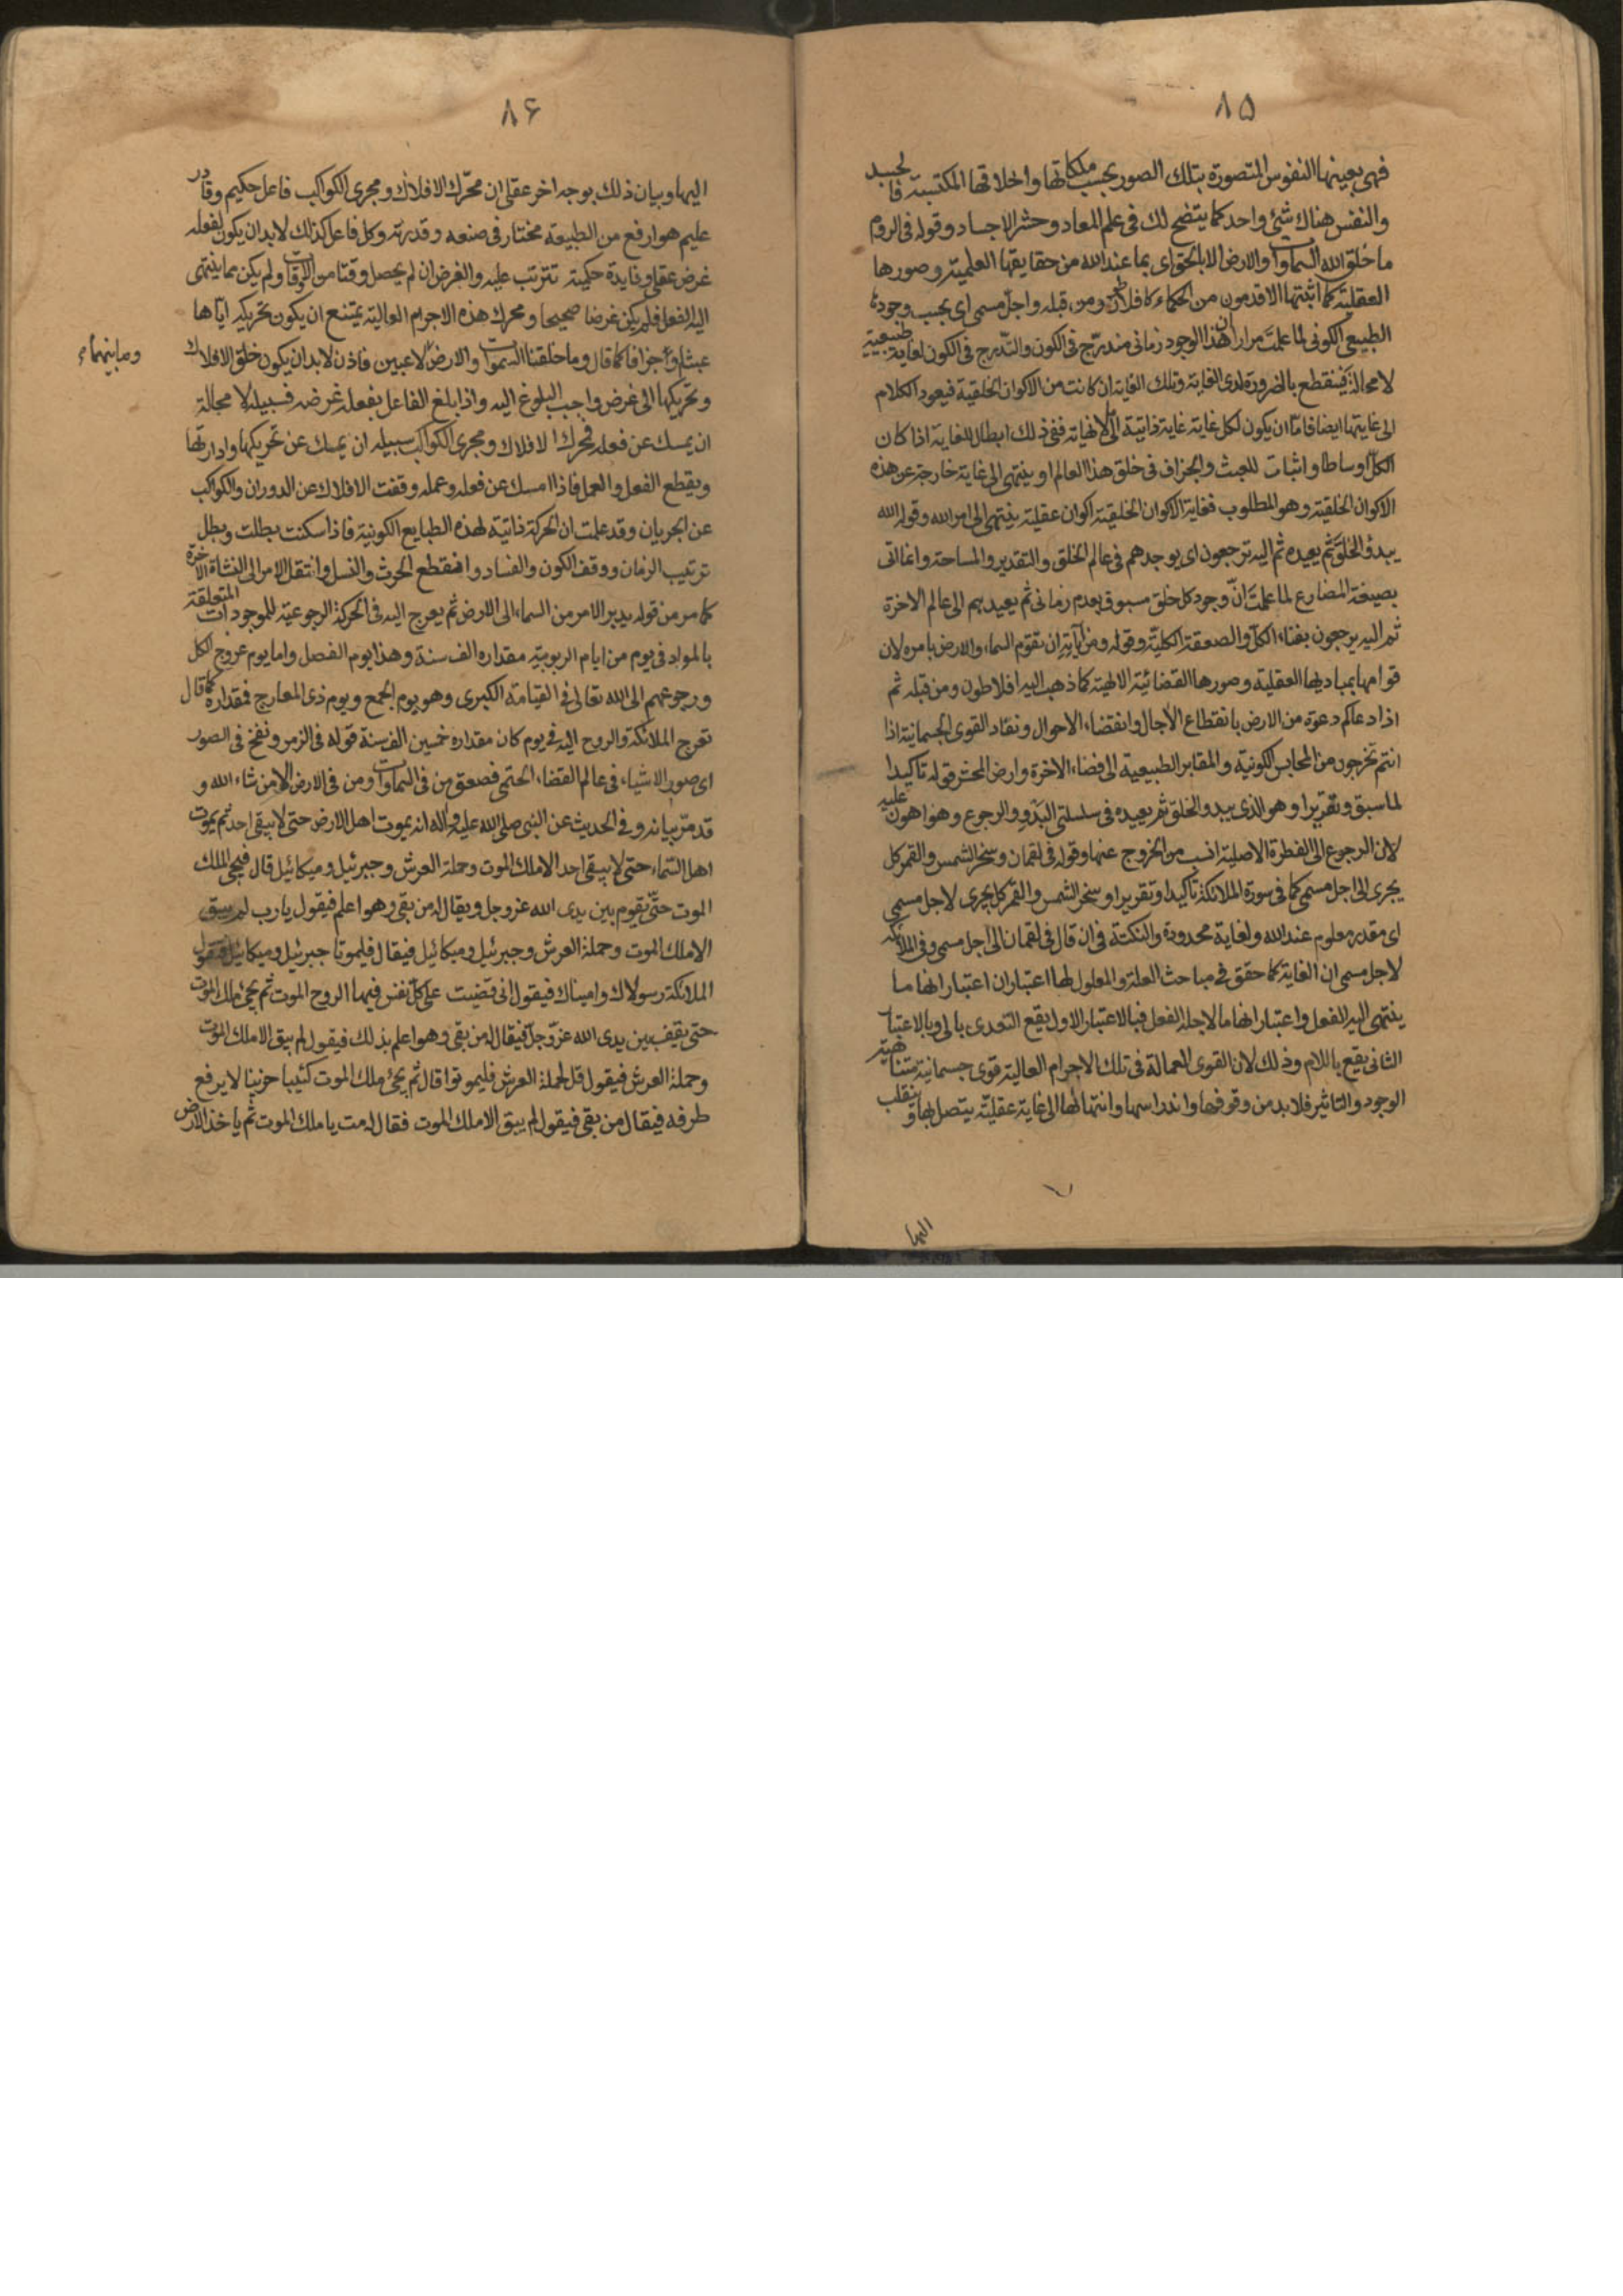 ٨۵
فهى بعينها النفوس المتصورة بتلك الصور بحسب ملكاتها واخلاقها المكتسبة فالجسد
والنفس هناك شئ واحد كما يتضح لك فى علم المعاد وحشر الاجساد وقوله فى الروم
ما خلق الله السماوات والارض الا بالحق اى بما عند الله من حقايقها العلمية وصورها
العقلية كما اثبتها الاقدمون من الحكماء كافلاطن ومن قبله واجل مسمى اى بحسب وجودها
الطبيعى الكونى لما علمت مرارا ان هذا الوجود زمانى مندرّج فى الكون والتدرج فى الكون لغاية طبيعية
لا محالة فينقطع بالضرورة لدى الغاية وتلك الغاية ان كانت من الاكوان الخلقية فيعود الكلام
الى غايتها ايضا فامّا ان يكون لكل غاية غاية ذاتية الى لا نهاية ففى ذلك ابطال للغاية اذا كان
الكل اوساطا واثبات للعبث والجزاف فى خلق هذا العالم او ينتهى الى غاية خارجة عن هذه
الاكوان الخلقية وهو المطلوب فغاية الاكوان الخلقية اكوان عقلية ينتهى الى امر الله وقوله الله
يبدؤ الخلق ثم يعيده ثم اليه ترجعون اى يوجدهم فى عالم الخلق والتقدير والمساحة وانما اتى
بصيغة المضارع لما علمت انّ وجود كل خلق مسبوق بعدم زمانى ثم يعيد بهم الى عالم الاخرة
ثم اليه يرجعون بفناء الكل والصعقة الكليّة وقوله ومن آياته ان تقوم السماء والارض بامره لان
قوامها بمباديها العقلية وصورها القضائية الالهية كما ذهب اليه افلاطون ومن قبله ثم
اذا دعاكم دعوة من الارض بانقطاع الآجال وانقضاء الاحوال ونفاد القوى الجسمانية اذا
انتم تخرجون من المحابس الكونية والمقابر الطبيعية الى فضاء الاخرة وارض المحشر قوله تاكيدا
لما سبق وتقريرا وهو الذى يبدو الخلق ثم يعيده فى سلسلتى البدو والرجوع وهو اهون عليه
لان الرجوع الى الفطرة الاصلية انسب من الخروج عنها وقوله فى لقمان وسخر الشمس والقمر كل
يجرى الى اجل مسمى كما فى سورة الملائكة تاكيدا وتقريرا وسخر الشمس والقمر كل يجرى لاجل مسمى
اى مقدر معلوم عند الله ولغاية محدودة والنكتة فى ان قال فى لقمان الى اجل مسمى وفى الملائكة
لاجل مسمى ان الغاية كما حقق فى مباحث العلة والمعلول لها اعتباران اعتبار انها ما
ينتهى اليه الفعل واعتبار انها ما لاجله الفعل فبالاعتبار الاول يقع التعدى بالى وبالاعتبار
الثانى يقع باللام وذلك لان القوى الفعالة فى تلك الاجرام العالية قوى جسمانية متناهية
الوجود والتاثير فلا بد من وقوفها واندراسها وانتهائها الى غاية عقليّة يتصل بها وينقلب
اليها
٨۶
اليها وبيان ذلك بوجه اخر عقلى ان محرّك الافلاك ومجرى الكواكب فاعل حكيم وقادر
عليم هو ارفع من الطبيعة مختار فى صنعه وقدرته وكل فاعل كذلك لا بد ان يكون لفعله
غرض عقلى وفايدة حكمية تترتب عليه والغرض ان لم يحصل وقتا من الاوقات ولم يكن مما ينتهى
اليه الفعل فلم يكن غرضا صحيحا ومحرك هذه الاجرام العالية يمتنع ان يكون تحريكه اياها
عبثا وجزافا كما قال وما خلقنا السموات والارض لاعبين فاذن لا بد ان يكون خلق الافلاك
وما بينهما
وتحريكها الى غرض واجب البلوغ اليه واذا بلغ الفاعل بفعله غرضه فسبيله لا محالة
ان يمسك عن فعله فمحرك الافلاك ومجرى الكواكب سبيله ان يمسك عن تحريكها وادارتها
ويقطع الفعل والعمل فاذا امسك عن فعله وعمله وقفت الافلاك عن الدوران والكواكب
عن الجريان وقد علمت ان الحركة ذاتية لهذه الطبايع الكونية فاذا سكنت بطلت وبطل
ترتيب الزمان ووقف الكون والفساد وانقطع الحرث والنسل وانتقل الامر الى النشاة الآخرة
كما مر من قوله يدبر الامر من السماء الى الارض ثم يعرج اليه فى الحركة الرجوعية للموجودات المتعلقة
بالمواد فى يوم من ايام الربوبية مقداره الف سنة وهذا يوم الفصل واما يوم عروج الكل
ورجوعهم الى الله تعالى فى القيامة الكبرى وهو يوم الجمع ويوم ذى المعارج فمقداره كما قال
تعرج الملائكة والروح اليه فى يوم كان مقداره خمسين الف سنة قوله فى الزمر ونفخ فى الصور
اى صور الاشياء فى عالم القضاء الحتمى فصعق من فى السماوات ومن فى الارض الا من شاء الله و
قد مرّ بيانه وفى الحديث عن النبى صلى الله عليه وآله انه يموت اهل الارض حتى لا يبقى احد ثم يموت
اهل السّماء حتى لا يبقى احد الا ملك الموت وحملة العرش وجبرئيل وميكائيل قال فيجئ الملك
الموت حتّى يقوم بين يدى الله عز وجل ويقال له من بقى وهو اعلم فيقول يا رب لم يبق
الا ملك الموت وحملة العرش وجبرئيل وميكائيل فيقال فليموتا جبرئيل وميكائيل فيقول
الملائكة رسولاك واميناك فيقول انى قضيت على كل نفس فيها الروح الموت ثم يجئ ملك الموت
حتى يقف بين يدى الله عزّ وجلّ فيقال له من بقى وهو اعلم بذلك فيقول لم يبق الا ملك الموت
وحملة العرش فيقول قل لحملة العرش فليموتوا قال ثم يجئ ملك الموت كئيبا حزينا لا يرفع
طرفه فيقال من بقى فيقول لم يبق الا ملك الموت فقال له مت يا ملك الموت ثم ياخذ الارض